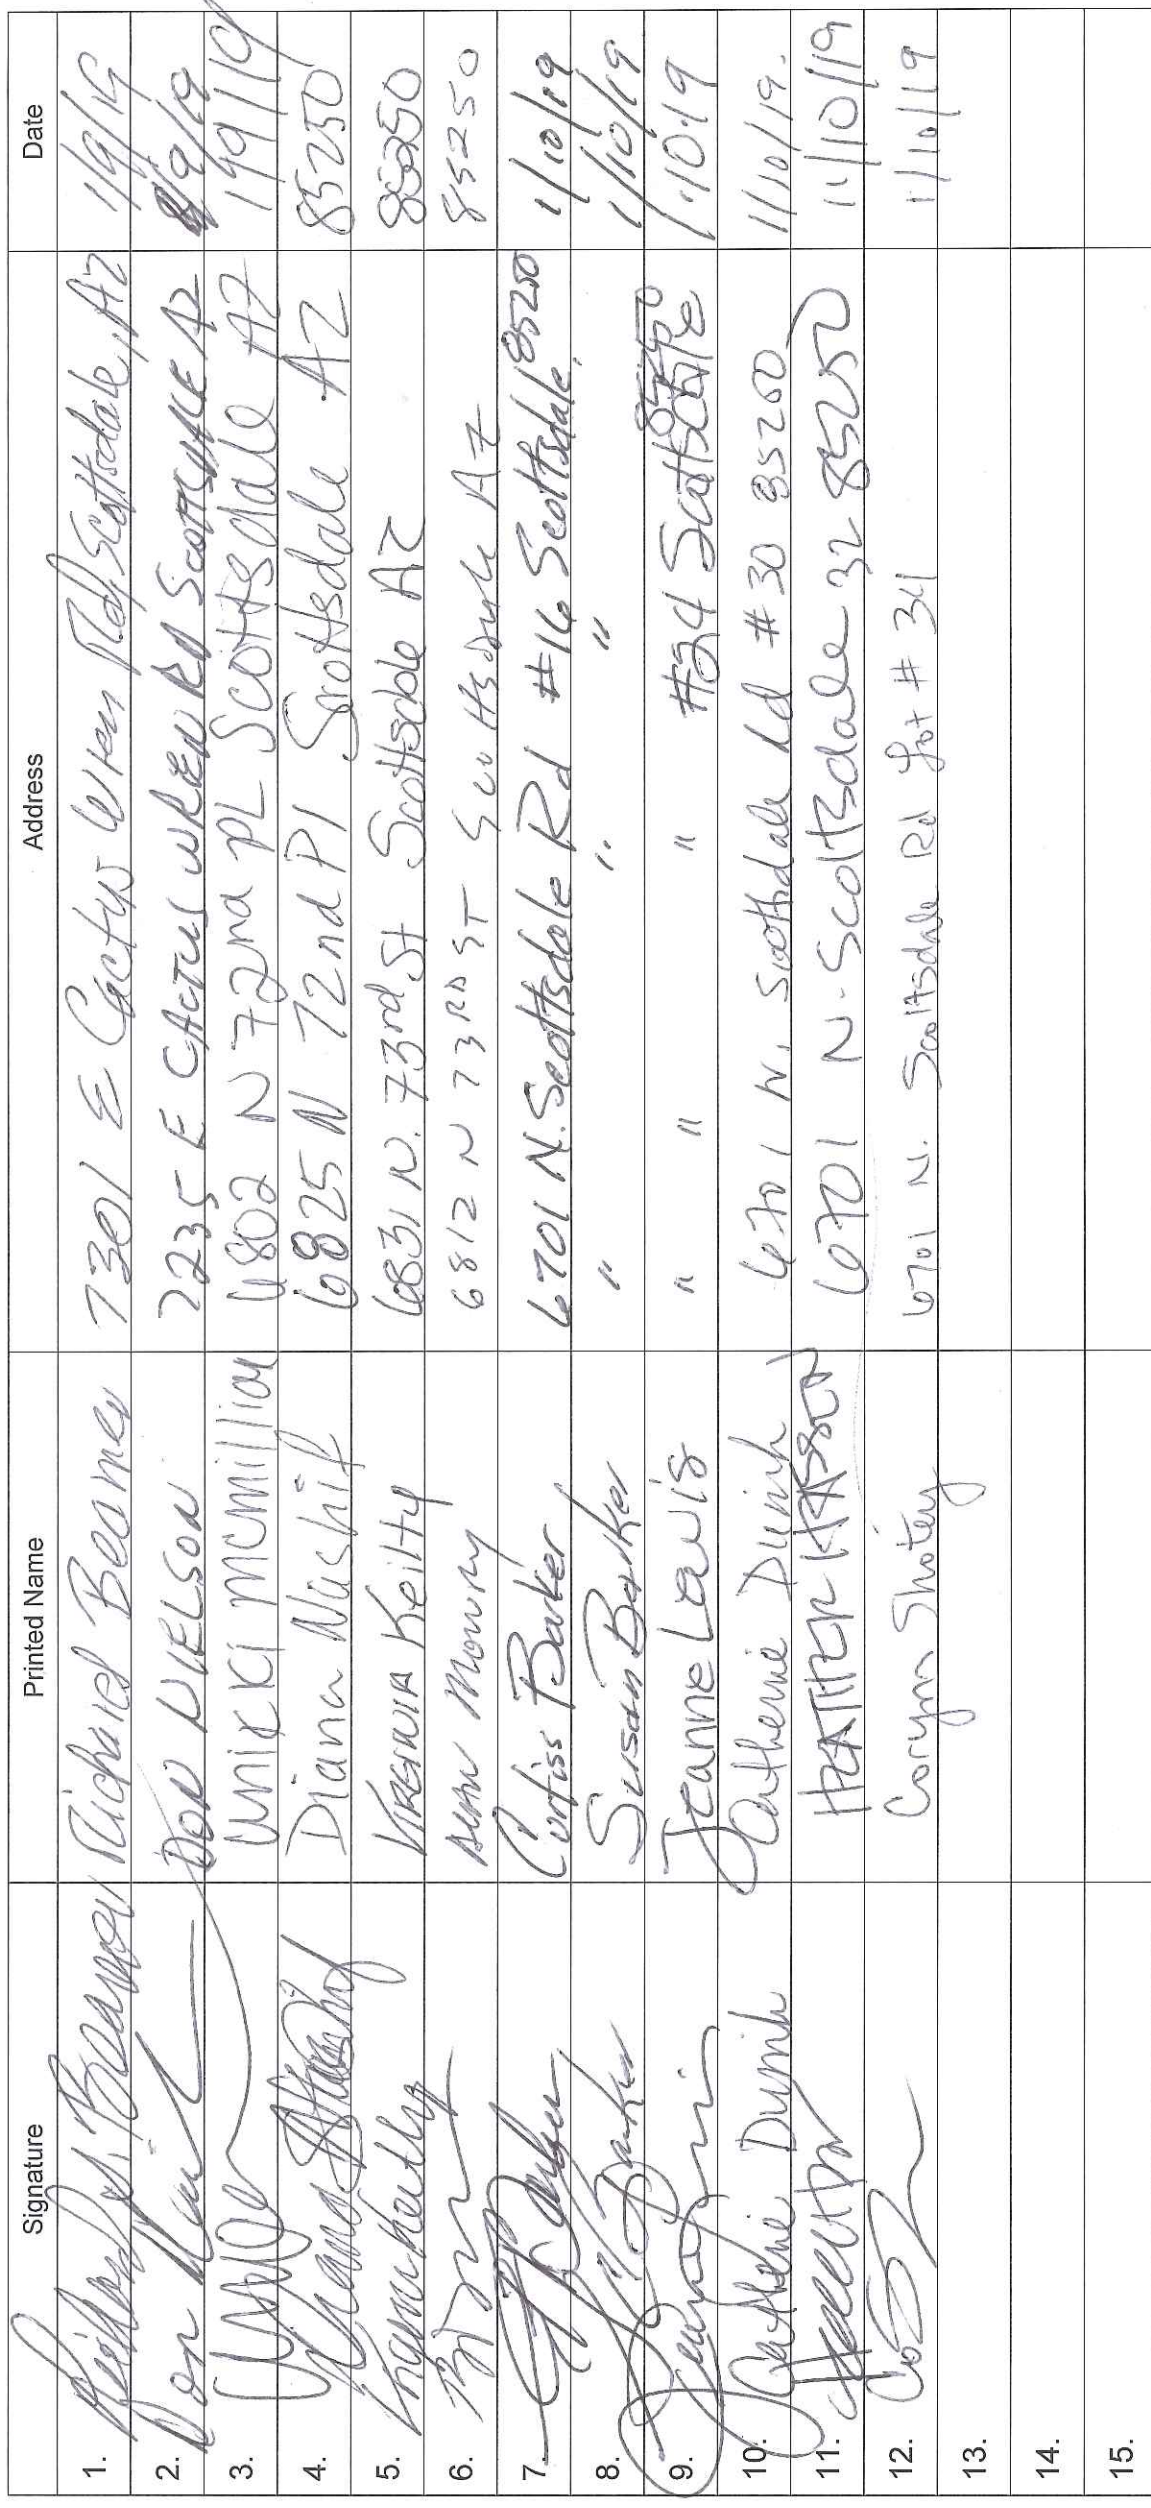 Signature Printed Name Address Date
1. Richard Beamer 7301 E Cactus Wren Rd, Scottsdale, AZ 1/9/19
2. DON NIELSON 7235 E CACTUS WREN RD SCOTTSDALE AZ 1/9/19
3. mcmillian 6802 N 72nd PL Scottsdale AZ 1/9/19
4. Diana Nashif 6825 N 72nd Pl Scottsdale AZ 85250
5. VIRGINIA Keilty 6831 N. 73rd St Scottsdale AZ 85250
6. Mowry 6812 N 73RD ST Scottsdale AZ 85250
7. Curtiss Barker 6701 N. Scottsdale Rd #16 Scottsdale 85250 1/10/19
8. Susan Barker " " " 1/10/19
9. Jeanne Lewis " " " #24 Scottsdale 85250 1/10/19
10. Catherine Dunih Catherine Dunih 6701 N. Scottsdale Rd #30 85250 1/10/19.
11. HEATHER 6701 N. Scottsdale 32 85250 1/10/19
12. Corynn Shotey 6701 N. Scottsdale Rd Lot #34 1/10/19
13.
14.
15.